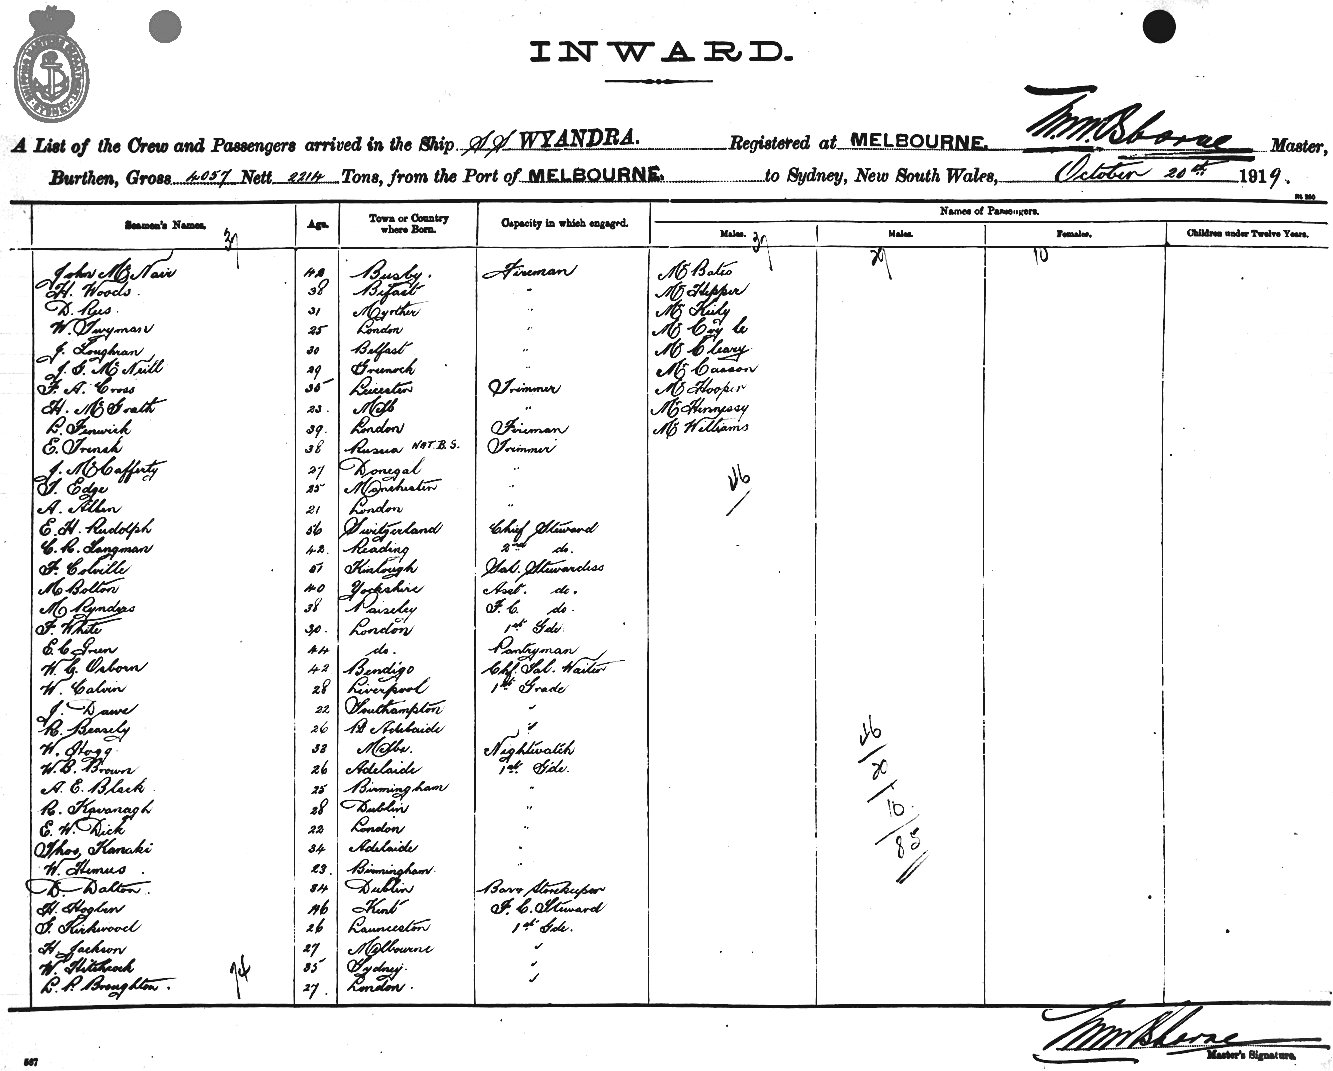 INWARD.
A List of the Crew and Passengers arrived in the Ship SS WYANDRA. Registered at MELBOURNE. Master,
Burthen, Gross 4057 Nett 2214 Tons, from the Port of MELBOURNE. to Sydney, New South Wales, October 20th 1919.
Names of Passengers.
Seamen's Names. Age. Town or Country where Born. Capacity in which engaged. Males. Males. Females. Children under Twelve Years.
37 37 29 10
John McNair 42 Busby. Fireman Mr Bates
H. Woods. 38 Belfast " Mr Hepper
D. Rees 31 Myrther " Mr Kiely
W. Twyman 25 London " Mr
J. Loughran 30 Belfast " Mr Cleary
J. G. McNeill 29 Greenock " Mr Casson
F. A. Cross 35 Leicester Trimmer Mr Hooper
H. McGrath 23. Melb " Mr Hennessy
L. Fenwick 39. London Fireman Mr Williams
E. French 38 Russia NOT B.S. Trimmer
J. McCafferty 27 Donegal "
T. Edge 25 Manchester "
A. Allen 21 London "
E. H. Rudolph 56 Switzerland Chief Steward
C. R. Langman 42. Reading 2nd do.
F. Colville 51 Kinlough Sal. Stewardess
M Bolton 40 Yorkshire Asst. do.
M Rynders 38 Paiseley F. C. do.
F. White 30. London 1st Gde.
E. C. Green 44 do. Pantryman
W. G. Osborn 42 Bendigo Chf. Sal. Waiter
W. Calvin 28 Liverpool 1st Grade
J. Dawe 22 Southampton "
R. Beasely 26 Pt Adelaide "
W. Hogg 38 Melbe. Nightwatch
W. B. Brown 26 Adelaide 1st Gde.
A. E. Black 25 Birmingham "
R. Kavanagh 28 Dublin "
E. W. Dick 22 London "
Thos. Kanaki 34 Adelaide "
W. Hemus 23. Birmingham "
D. Dalton. 34 Dublin Barr Storekeeper
H. Hoglin 46 Kent F. C. Steward
G. Kirkwood 26 Launceston 1st Gde.
H. Jackson 27 Melbourne "
W. Hitchcock 35 Sydney. "
L. P. Broughton. 27. London.
74
46
46
29
10
85
Master's Signature.
567